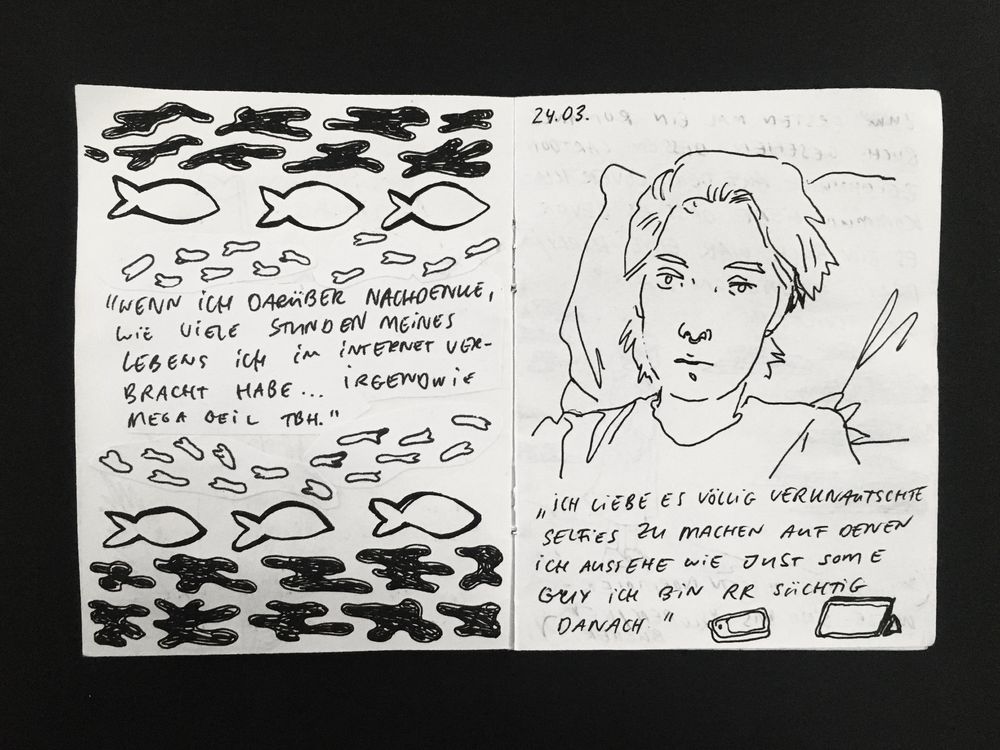 "WENN ICH DARÜBER NACHDENKE,
WIE VIELE STUNDEN MEINES
LEBENS ICH IM INTERNET VER-
BRACHT HABE... IRGENDWIE
MEGA GEIL TBH."
24.03.
„ICH LIEBE ES VÖLLIG VERKNAUTSCHTE
SELFIES ZU MACHEN AUF DENEN
ICH AUSSEHE WIE JUST SOME
GUY ICH BIN RR SÜCHTIG
DANACH"